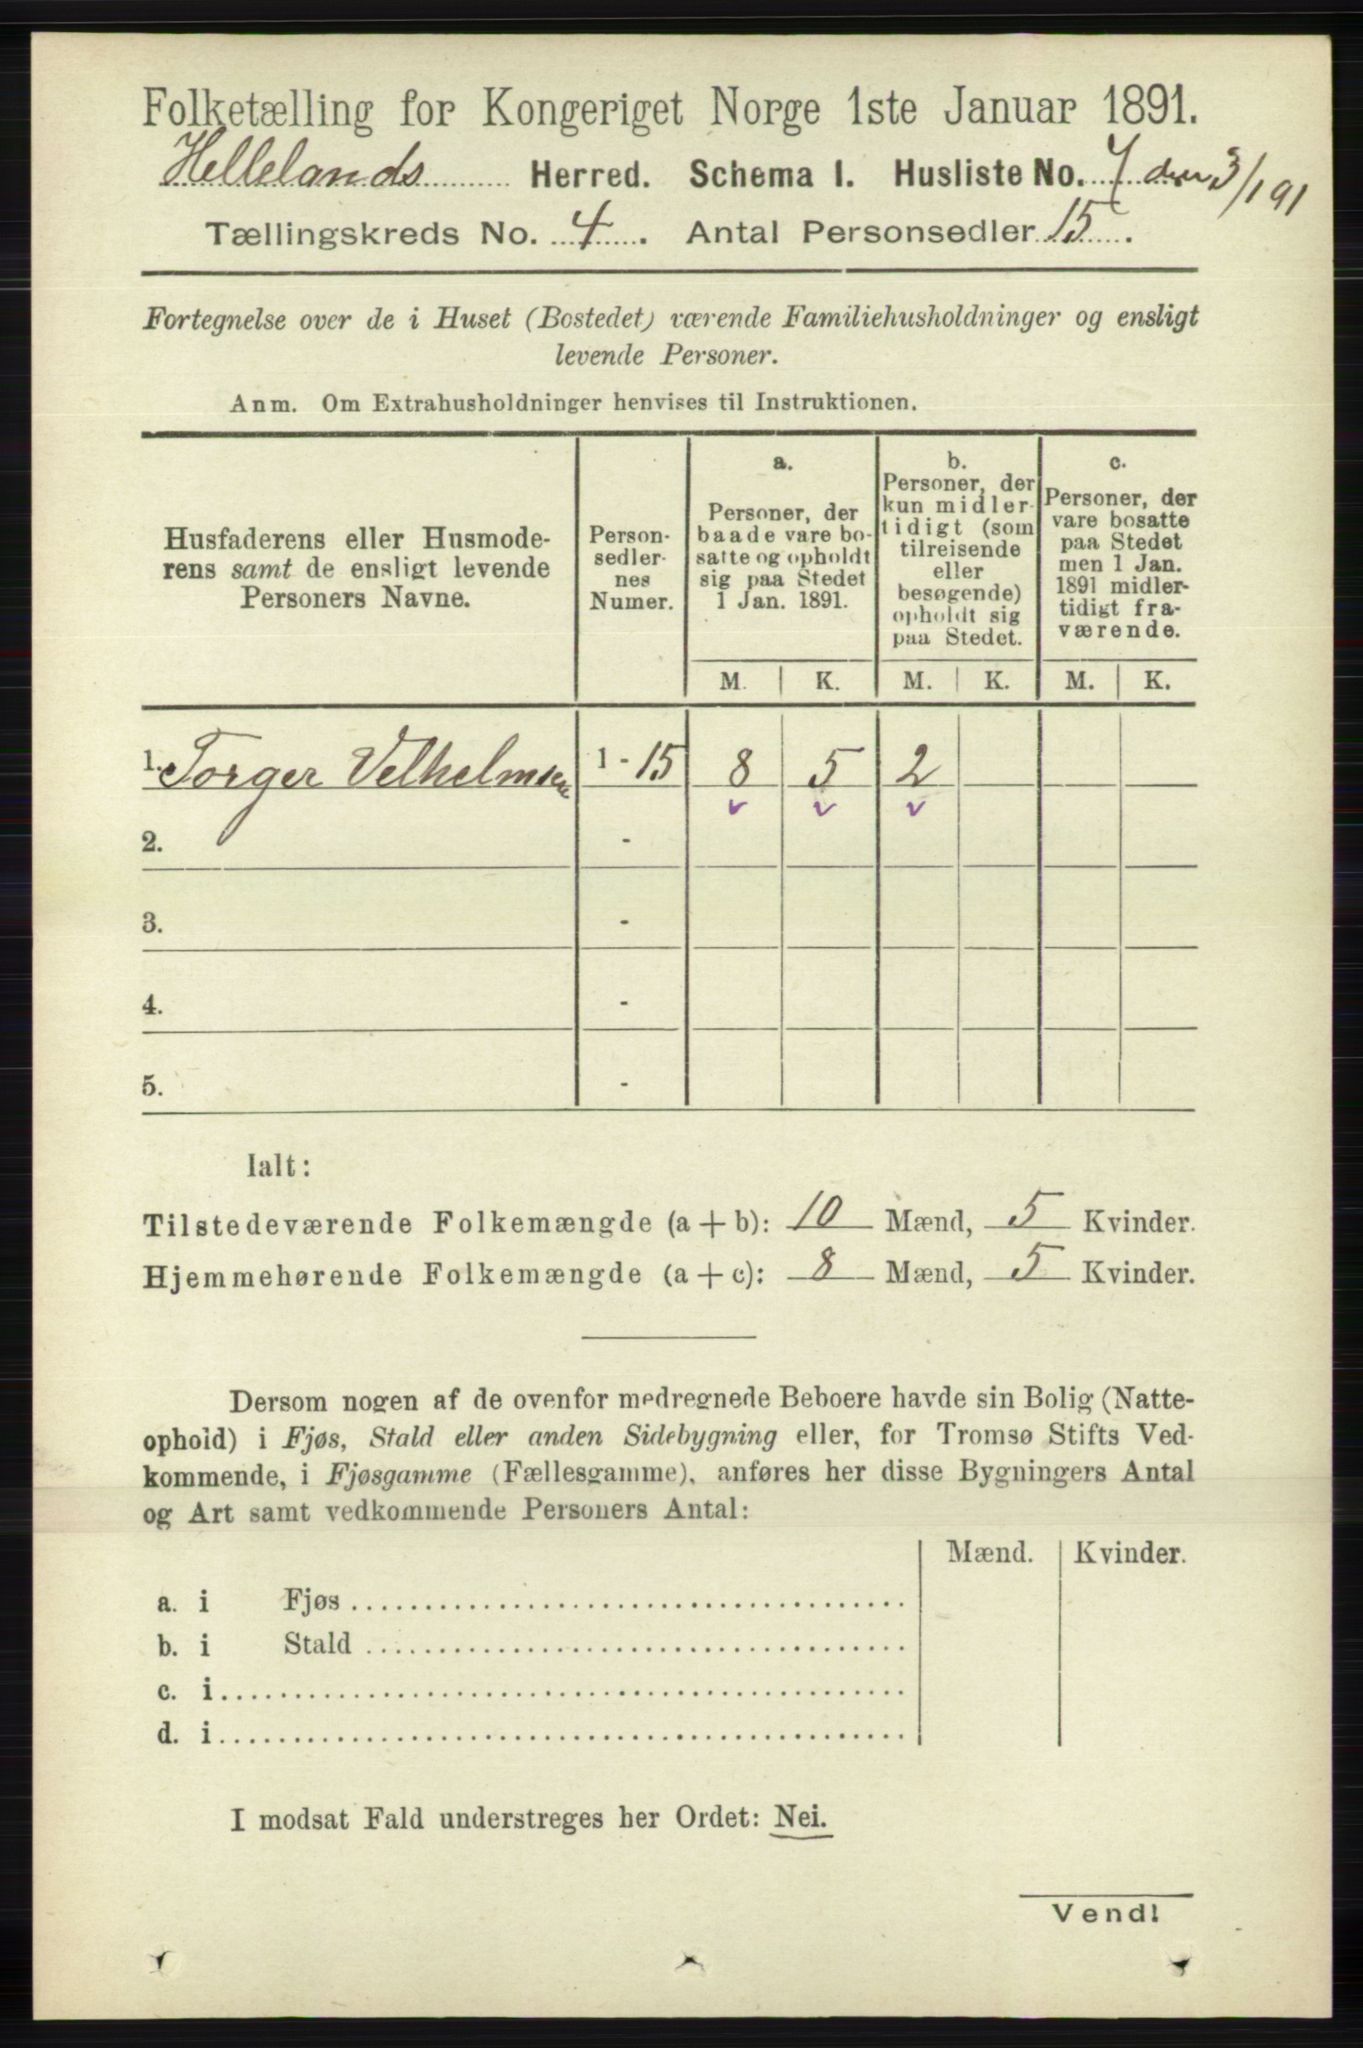 Folketælling for Kongeriget Norge 1ste Januar 1891.
Hellelands Herred. Schema I. Husliste No. 7 den 3/1 91
Tællingskreds No. 4. Antal Personsedler 15.
Fortegnelse over de i Huset (Bostedet) værende Familiehusholdninger og ensligt
levende Personer.
Anm. Om Extrahusholdninger henvises til Instruktionen.
Husfaderens eller Husmode-
rens samt de ensligt levende
Personers Navne.
Person-
sedler-
nes
Numer.
a.
Personer, der
baade vare bo-
satte og opholdt
sig paa Stedet
1 Jan. 1891.
b.
Personer, der
kun midler-
tidigt (som
tilreisende
eller
besøgende)
opholdt sig
paa Stedet.
c.
Personer, der
vare bosatte
paa Stedet
men 1 Jan.
1891 midler-
tidigt fra-
værende.
M. K. M. K. M. K.
1. Torger Velhelmsen 1 - 15 8 5 2
2. -
3. -
4. -
5. -
Ialt:
Tilstedeværende Folkemængde (a + b): 10 Mænd, 5 Kvinder.
Hjemmehørende Folkemængde (a + c): 8 Mænd, 5 Kvinder.
Dersom nogen af de ovenfor medregnede Beboere havde sin Bolig (Natte-
ophold) i Fjøs, Stald eller anden Sidebygning eller, for Tromsø Stifts Ved-
kommende, i Fjøsgamme (Fællesgamme), anføres her disse Bygningers Antal
og Art samt vedkommende Personers Antal:
Mænd. Kvinder.
a. i Fjøs
b. i Stald
c. i
d. i
I modsat Fald understreges her Ordet: Nei.
Vend!